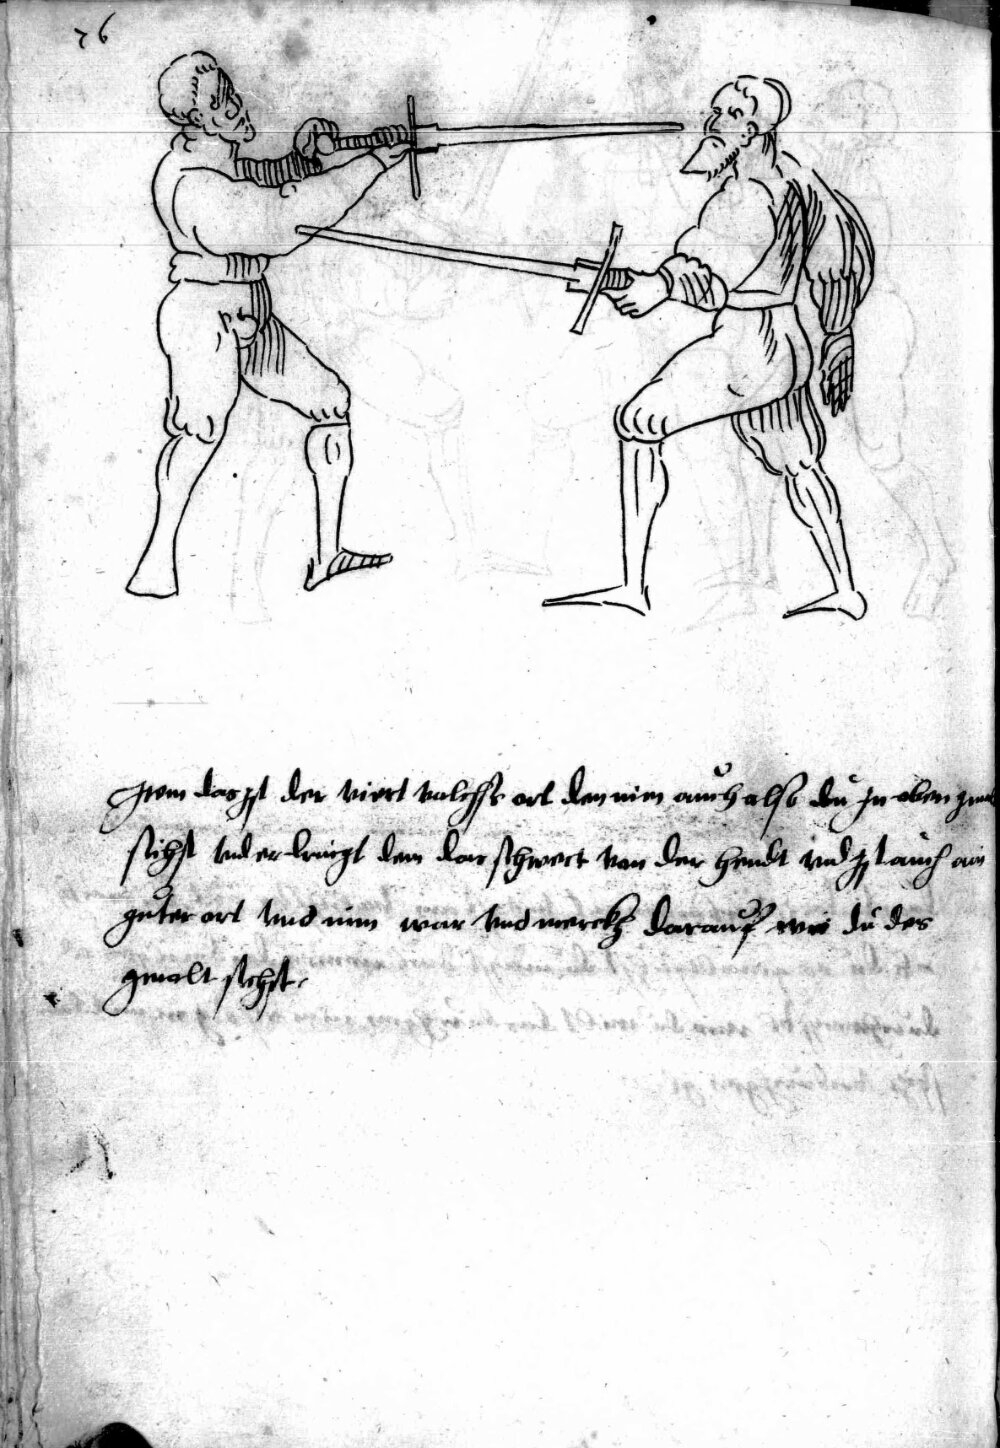 76
Item das ist der viert valschs ort den nim auch also du In oben zum
sichst vnd er bringt dem das schwert von der hendt vnd ist auch ain
guter ort vnd nim war vnd merckh darauf wie du des
gmalt sichst.